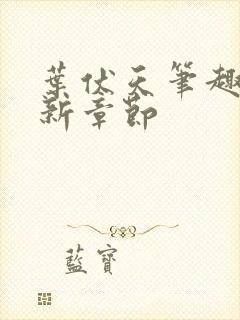 葉伏天筆趣
新章節
藍寶